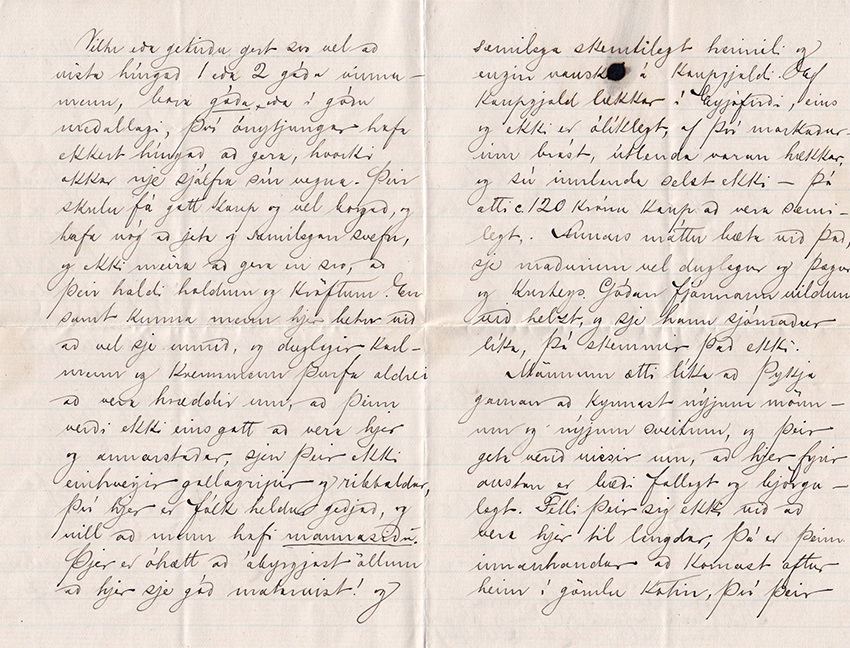 Viltu eða geturðu gert svo vel að
vista hingað 1 eða 2 góða vinnu-
menn, bara góða, eða í góðu
meðallagi, því ónytjungar hafa
ekkert hingað að gera, hvorki
okkar nje sjálfra sín vegna. Þeir
skulu fá gott kaup og vel borgað, og
hafa nóg að jeta og sæmilegan svefn,
og ekki meira að gera en svo, að
þeir haldi holdum og kröftum. En
samt kunna menn hjer betur við
að vel sje unnið, og duglegir karl-
menn og kvennmenn þurfa aldrei
að vera hræddir um, að þeim
verði ekki eins gott að vera hjer
og annarstaðar, sjeu þeir ekki
einhverjir gallagripir og ribbaldar,
því hjer er fólk heldur geðjað, og
vill að menn hafi mannasiðu.
Þjer er óhætt að ábyrgjast öllum
að hjer sje góð matarvist! og
sæmilega skemtilegt heimili og
engin vansk á kaupgjaldi. Ef
kaupgjald lækkar í Eyjafirði, eins
og ekki er ólíklegt, af því markadur-
inn brást, útlenda varan hækkar,
og sú innlenda selst ekki — þá
ætti c. 120 króna kaup að vera sæmi-
legt. Annars máttu bæta við það,
sje maðurinn vel duglegur og þægur
og kurteys. Góðan fjármann vildum
við helst, og sje hann sjómaður
líka, þá skemmir það ekki.
Mönnum ætti líka að þykja
gaman að kynnast nýjum mönn-
um og nýjum sveitum, og þeir
geta verið vissir um, að hjer fyrir
austan er bæði fallegt og björgu-
legt. Felli þeir sig ekki við að
vera hjer til lengdar, þá er þeim
innanhandar að komast aftur
heim í gömlu kotin, því þeir